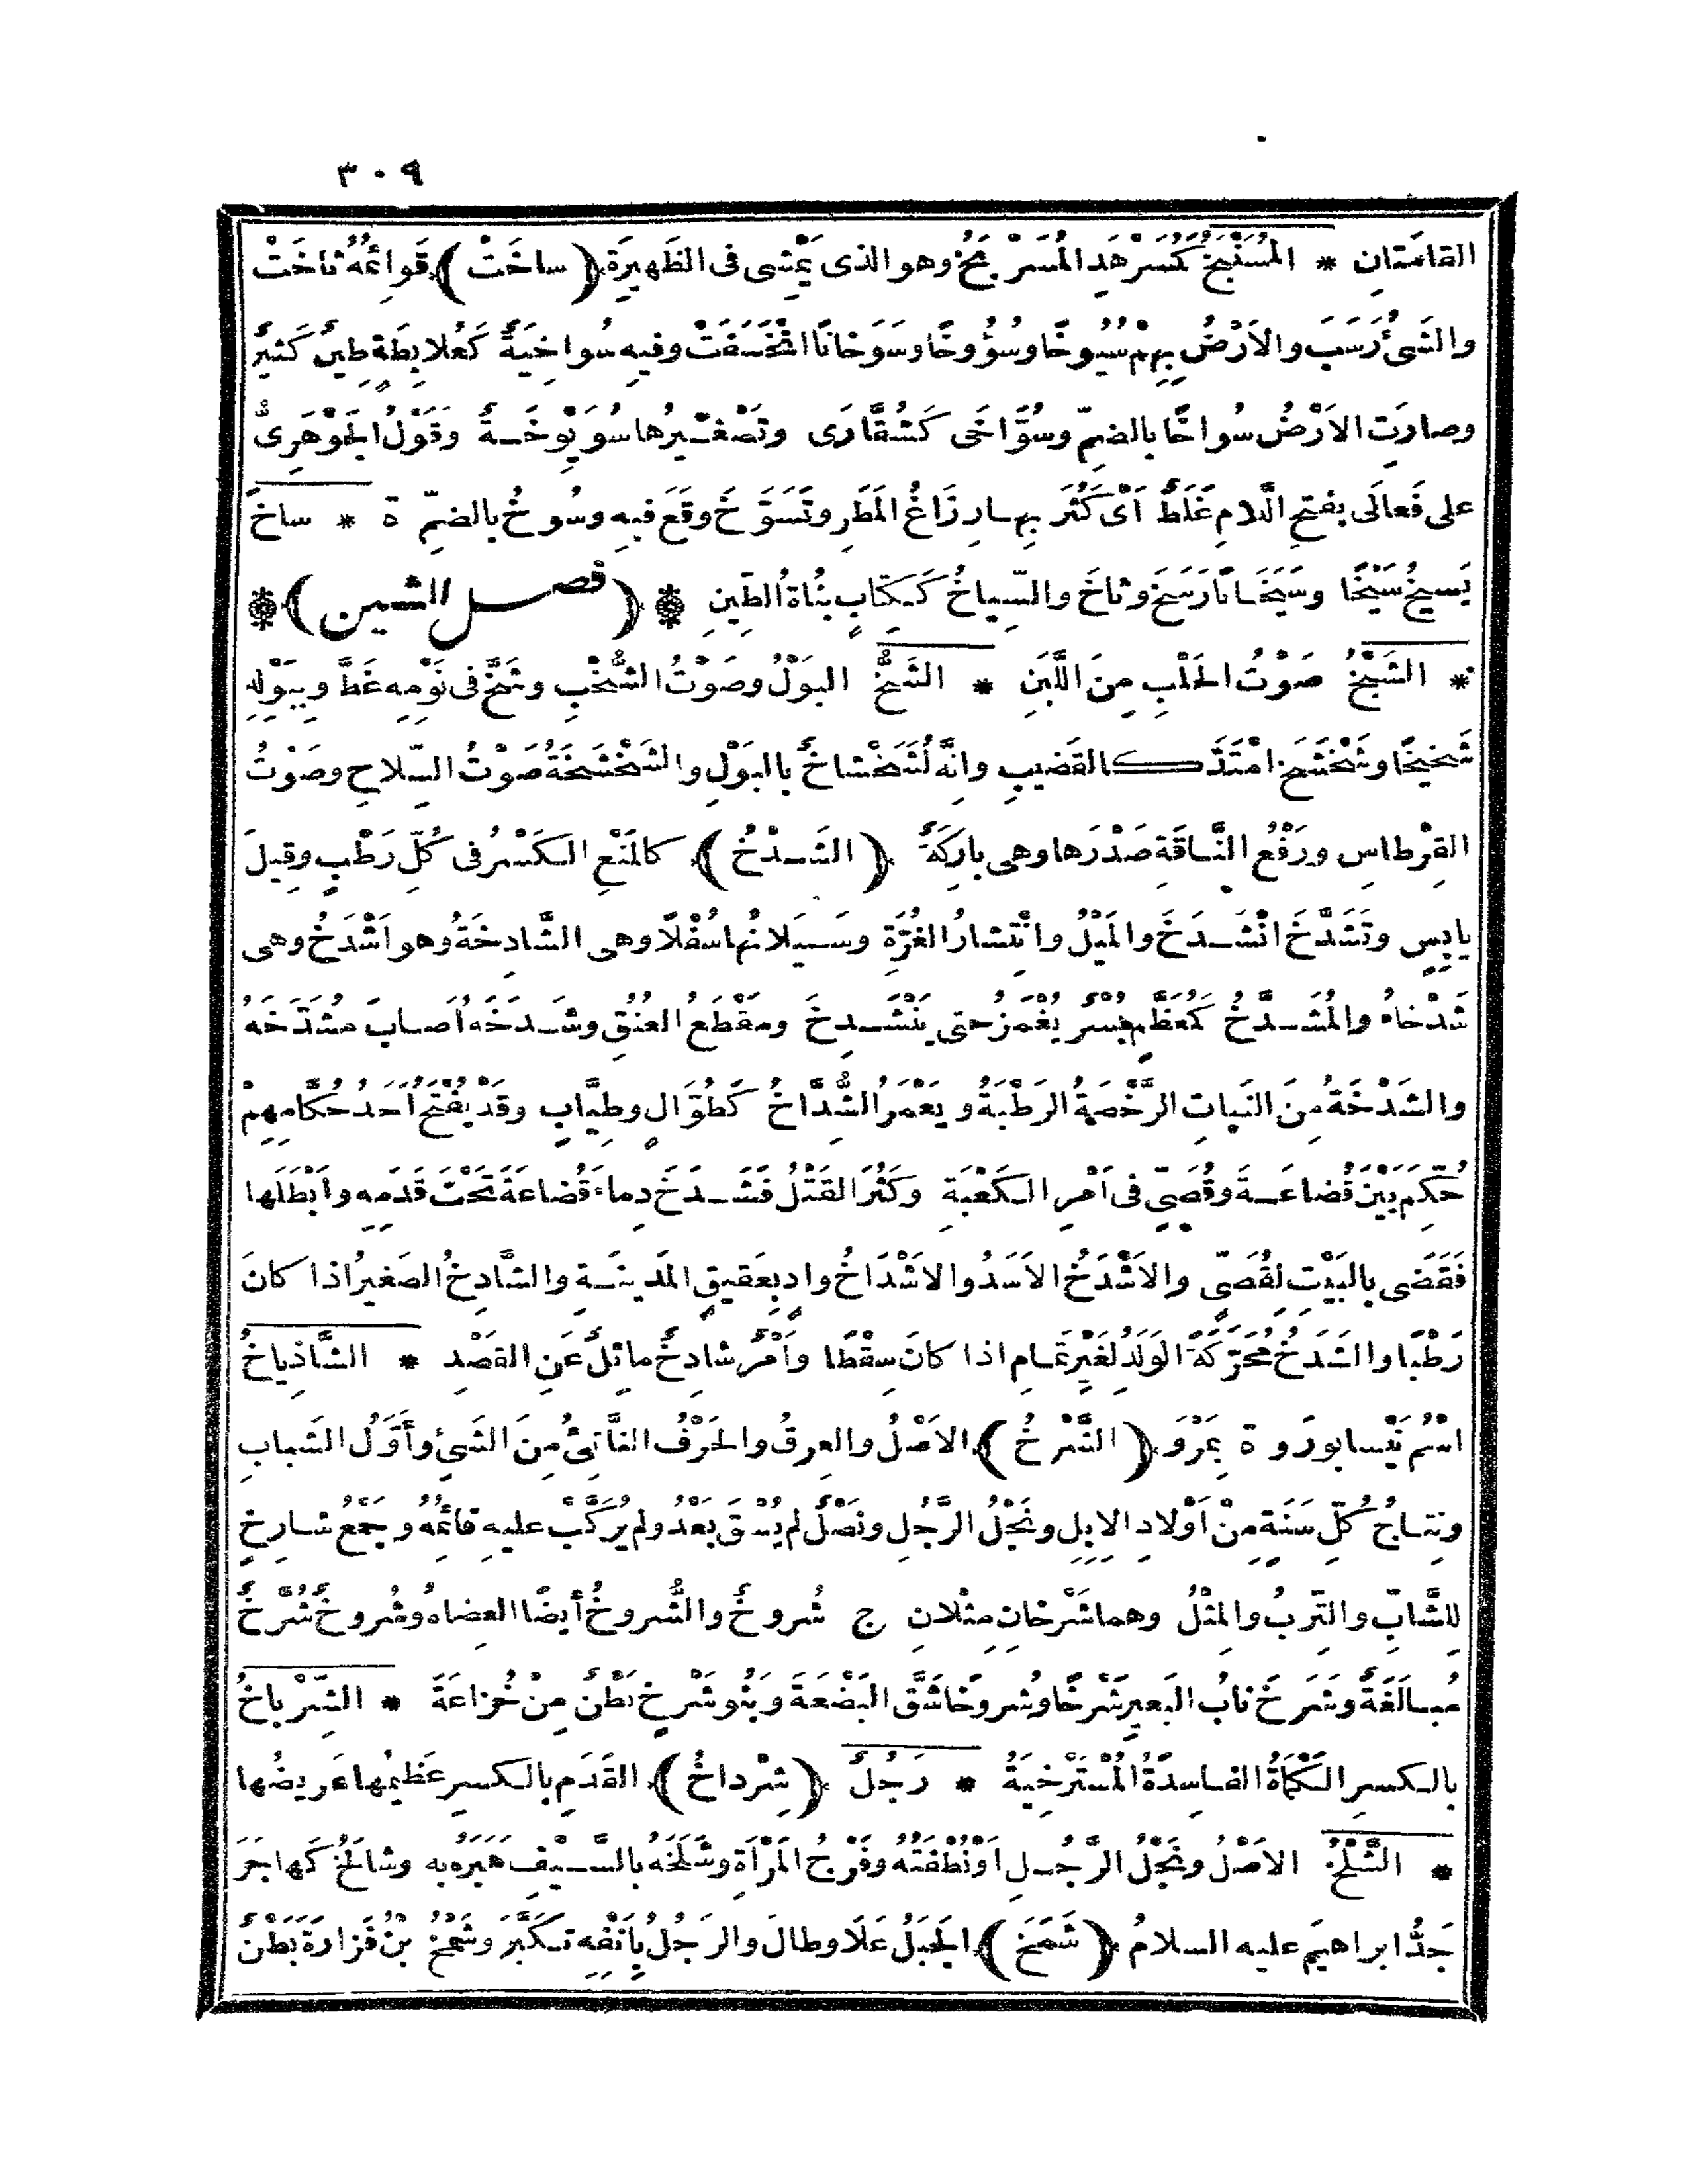 ٣٠٩
القامَتانِ * المُسَنْبَخُ كَمُسَرْهَدٍ المُسَرْبَخُ وهو الذى يَمْشى فى الظَهيرَةِ (ساخَتْ) قَوائِمُهُ ثاخَتْ
والشئُ رَسَبَ والاَرْضُ بِهِمْ سُيُوخًا وسُؤُوخًا وسَوَخانًا انْخَسَفَتْ وفيهِ سُواخِيَةٌ كَعُلابِطَةٍ طِينٌ كَثيرٌ
وصارَتِ الاَرْضُ سُواخًا بالضمِّ وسُوَّاخَى كَشُقَّارَى وتَصْغيرُها سُوَيْوِخَةٌ وقَوْلُ الجَوْهَرِىُّ
على فَعالَى بفتحِ اللامِ غَلَطٌ اَىْ كَثُرَ بِهارِزَاغُ المَطَرِ وتَسَوَّخَ وقَعَ فيهِ وسُوخُ بالضمِّ ة * ساخَ
يَسيخُ سَيْخًا وسَيَخَانًا رَسَخَ وثاخَ والسِّياخُ كَكِتَابٍ بُنَاةُ الطِّينِ * (فصل الشين) *
* الشَبْخُ صَوْتُ الحَلْبِ مِنَ اللَّبَنِ * الشَخُّ البَوْلُ وصَوْتُ الشُّخْبِ وشَخَّ فى نَوْمِهِ غَطَّ وبِبَوْلِهِ
شَخيخًا وشَخْشَخَ امْتَدَّ كالقَضيبِ وانَّهُ لَشَخْشاخٌ بالبَوْلِ والشَخْشَخَةُ صَوْتُ السِّلاحِ وصَوْتُ
القِرْطاسِ ورَفْعُ النَّاقَةِ صَدْرَها وهى بارِكَةٌ (الشَدْخُ) كالمَنْعِ الكَسْرُ فى كُلِّ رَطْبٍ وقيلَ
يابِسٍ وتَشَدَّخَ انْشَدَخَ والمَيْلُ وانْتِشارُ الغُرَّةِ وسَيَلانُها سُفْلًا وهى الشَّادِخَةُ وهو اَشْدَخُ وهى
شَدْخاءُ والمُشَدَّخُ كَمُعَظَّمٍ بُسْرٌ يُغْمَزُ حتى يَنْشَدِخَ ومَقْطَعُ العُنُقِ وشَدَخَهُ اَصابَ مُشَدَّخَهُ
والشَدْخَةُ مِنَ النَباتِ الرَّخْصَةُ الرَطْبَةُ ويَعْمَرُ الشُّدَّاخُ كَطُوَّالٍ وطِيَّابٍ وقَدْ يُفْتَحُ اَحَدُ حُكَّامِهِمْ
حُكِّمَ بَيْنَ قُضاعَةَ وقُصَىٍّ فى اَمْرِ الكَعْبَةِ وكَثُرَ القَتْلُ فَشَدَخَ دِماءَ قُضاعَةَ تَحْتَ قَدَمِهِ واَبْطَلَها
فَقَضَى بالبَيْتِ لِقُصَىٍّ والاَشْدَخُ الاَسَدُ والاَشْدَاخُ وادٍ بِعَقيقِ المَدينَةِ والشَّادِخُ الصَغيرُ اذا كانَ
رَطْبًا والشَدَخُ مُحَرَّكَةً الوَلَدُ لِغَيْرِ تَمامٍ اذا كانَ سِقْطًا واَمْرٌ شادِخٌ مائِلٌ عَنِ القَصْدِ * الشَّاذِياخُ
اسْمُ نَيْسابورَ و ة بِمَرْوَ (الشَّرْخُ) الاَصْلُ والعِرْقُ والحَرْفُ الناتِئُ مِنَ الشئِ وأَوَّلُ الشَبابِ
ونِتاجُ كُلِّ سَنَةٍ مِنْ اَوْلادِ الاِبِلِ ونَجْلُ الرَّجُلِ ونَصْلٌ لم يُسْقَ بَعْدُ ولم يُرَكَّبْ عليهِ قائِمُهُ وجَمْعُ شارِخٍ
لِلشَّابِّ والتِّرْبُ والمِثْلُ وهما شَرْخانِ مِثْلانِ ج شُروخٌ والشُّروخُ أيضًا العِضاهُ وشُروخٌ شُرَّخٌ
مُبالَغَةٌ وشَرَخَ نابُ البَعيرِ شَرْخًا وشُروخًا شَقَّ البَضْعَةَ وبَنُو شَرْخٍ بَطْنٌ مِنْ خُزاعَةَ * الشِّرْباخُ
بالكسرِ الكَمْأَةُ الفاسِدَةُ المُسْتَرْخِيَةُ * رَجُلٌ (شِرْداخُ) القَدَمِ بالكسرِ عَظيمُها عَريضُها
* الشَّلْخُ الاَصْلُ ونَجْلُ الرَّجُلِ اَوْ نُطْفَتُهُ وفَرْجُ المَرْأَةِ وشَلَخَهُ بالسَّيْفِ هَبَرَهُ بِهِ وشالَخُ كَهاجَرَ
جَدُّ ابراهيمَ عليه السلامُ (شَمَخَ) الجَبَلُ عَلَا وطالَ والرَجُلُ بِأَنْفِهِ تَكَبَّرَ وشَمْخُ بْنُ فَزارَةَ بَطْنٌ